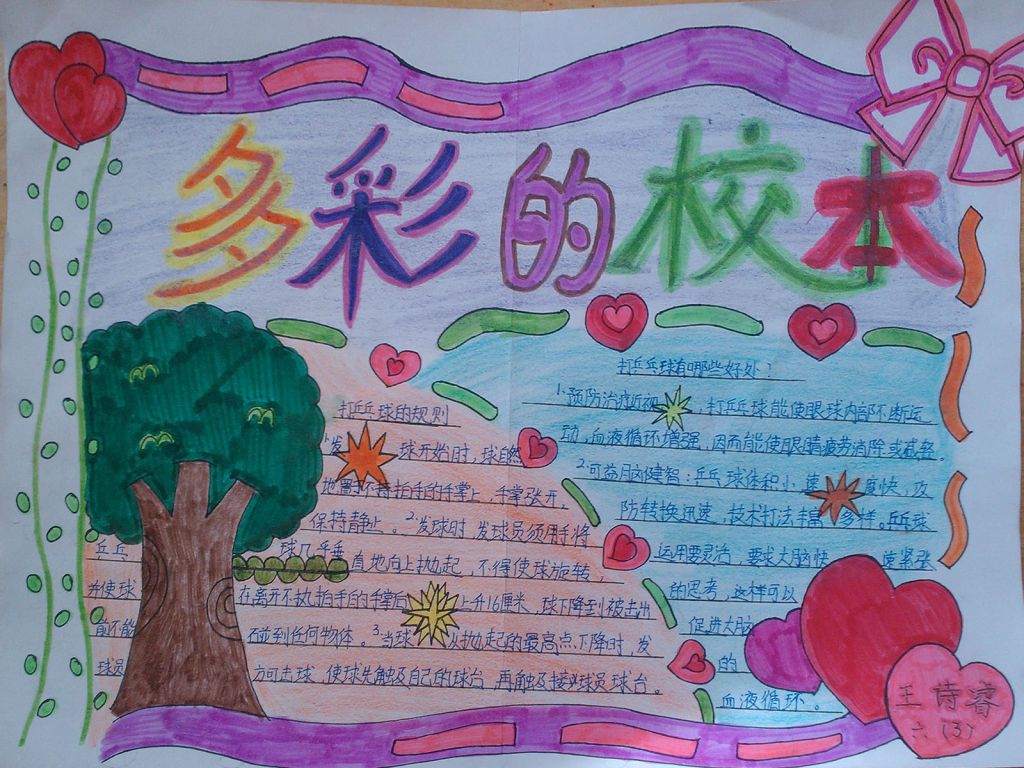 多彩的校本
打乒乓球的规则
1.发球开始时,球自然
地置于不持拍手的手掌上,手掌张开,
保持静止。2.发球时,发球员须用手将
乒乓球几乎垂直地向上抛起,不得使球旋转,
并使球在离开不执拍手的手掌后上升16厘米,球下降到被击出
前不能碰到任何物体。3.当球从抛起的最高点下降时,发
球员方可击球,使球先触及自己的球台,再触及接球员球台。
打乒乓球有哪些好处?
1.预防治疗近视,打乒乓球能使眼球内部不断运
动,血液循环增强,因而能使眼睛疲劳消除或减轻。
2.可益脑健智:乒乓球体积小,速度快,攻
防转换迅速,技术打法丰富多样。乒乓球
运用要灵活,要求大脑快速紧张
的思考,这样可以
促进大脑
的
血液循环。
王诗睿
六(3)